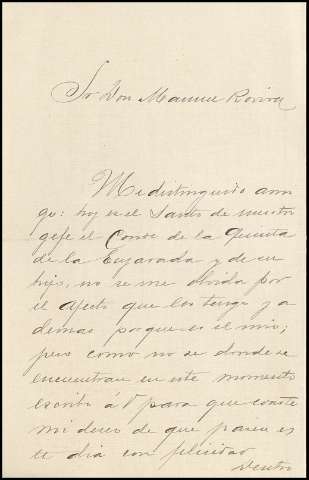 Sr Don Manuel Rovira
Mi distinguido ami
go: hoy es el Santo de nuestro
gefe el Conde de la Quinta
de la Enjarada y de su
hijo, no se me olvida por
el afecto que les tengo y a
demas porque es el mio;
pero como no se donde se
encuentran en este momento
escribo á V para que conste
mi deseo de que pasen es
te dia con felicidad
dentro